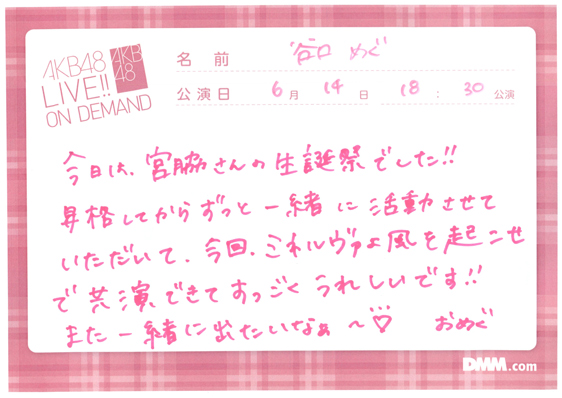 AKB48
LIVE!!
ON DEMAND
AKB
48
名前 谷口 めぐ
公演日 6月 14日 18:30公演
今日は、宮脇さんの生誕祭でした!!
昇格してからずっと一緒に活動させて
いただいて、今回、ミネルヴァよ風を起こせ
で共演できてすっごくうれしいです!!
また一緒に出たいなぁ〜♡ おめぐ
DMM.com